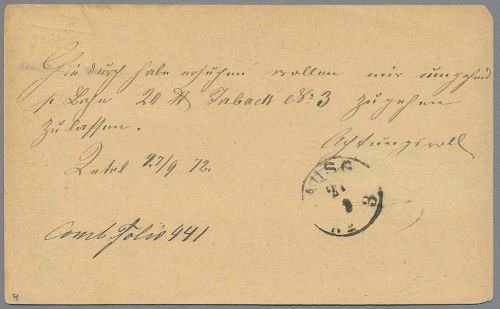 Hiedurch habe ersuchen wollen mir umgehend
p Bahn 20 ℔ Taback No 3 zugehen
zu lassen.
Achtungsvoll
Zetel 27/9 72.
AUSG
Conto Folio 441